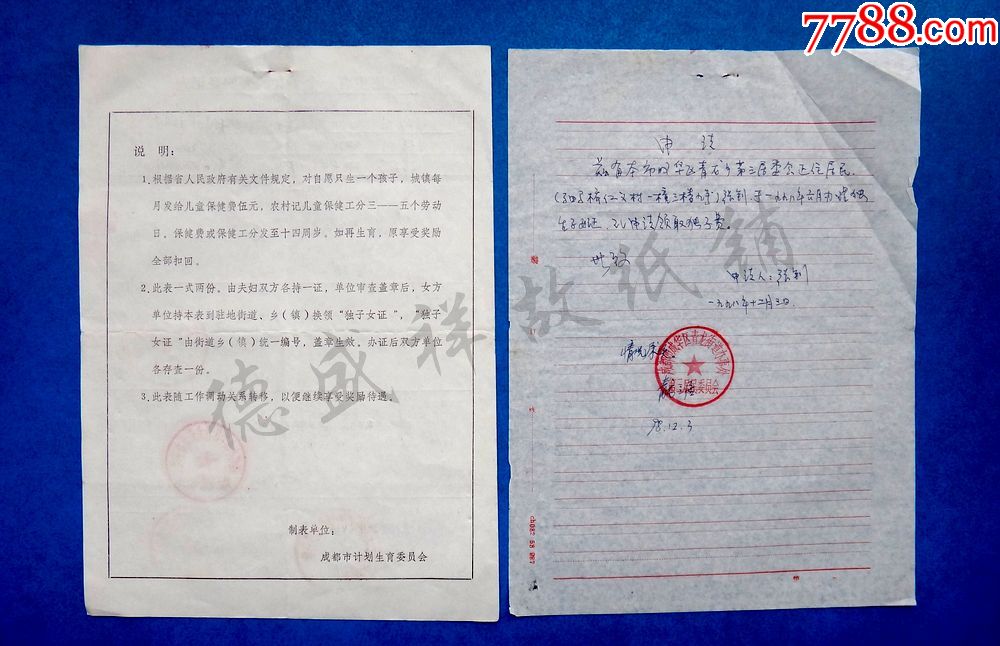 7788.com
说 明：
1、根据省人民政府有关文件规定，对自愿只生一个孩子，城镇每
月发给儿童保健费伍元，农村记儿童保健工分三——五个劳动
日。保健费或保健工分发至十四周岁。如再生育，原享受奖励
全部扣回。
2、此表一式两份。由夫妇双方各持一证，单位审查盖章后，女方
单位持本表到驻地街道、乡（镇）换领“独子女证”，“独子
女证”由街道乡（镇）统一编号，盖章生效。办证后双方单位
各存查一份。
3、此表随工作调动关系转移，以便继续享受奖励待遇。
制表单位：
成都市计划生育委员会
申 请
兹有本市成华区青龙乡第三居委会正住居民
于一九九八年六月办理独
生子女证，已申请领取独子费。
此致
申请人：
一九九八年十二月三日
情况
98.12.3
德盛祥故纸铺